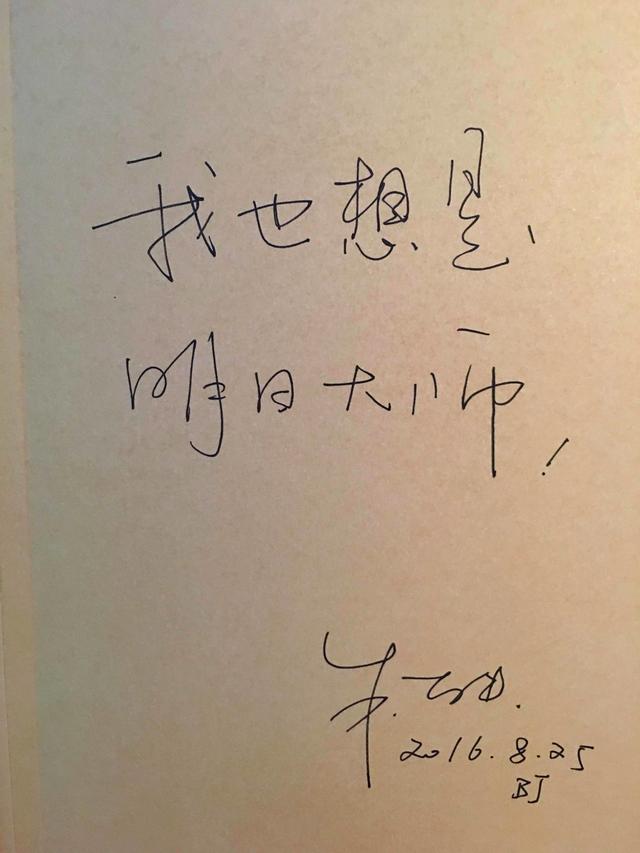 我也想是、
明日大师！
朱
2016.8.25
BJ